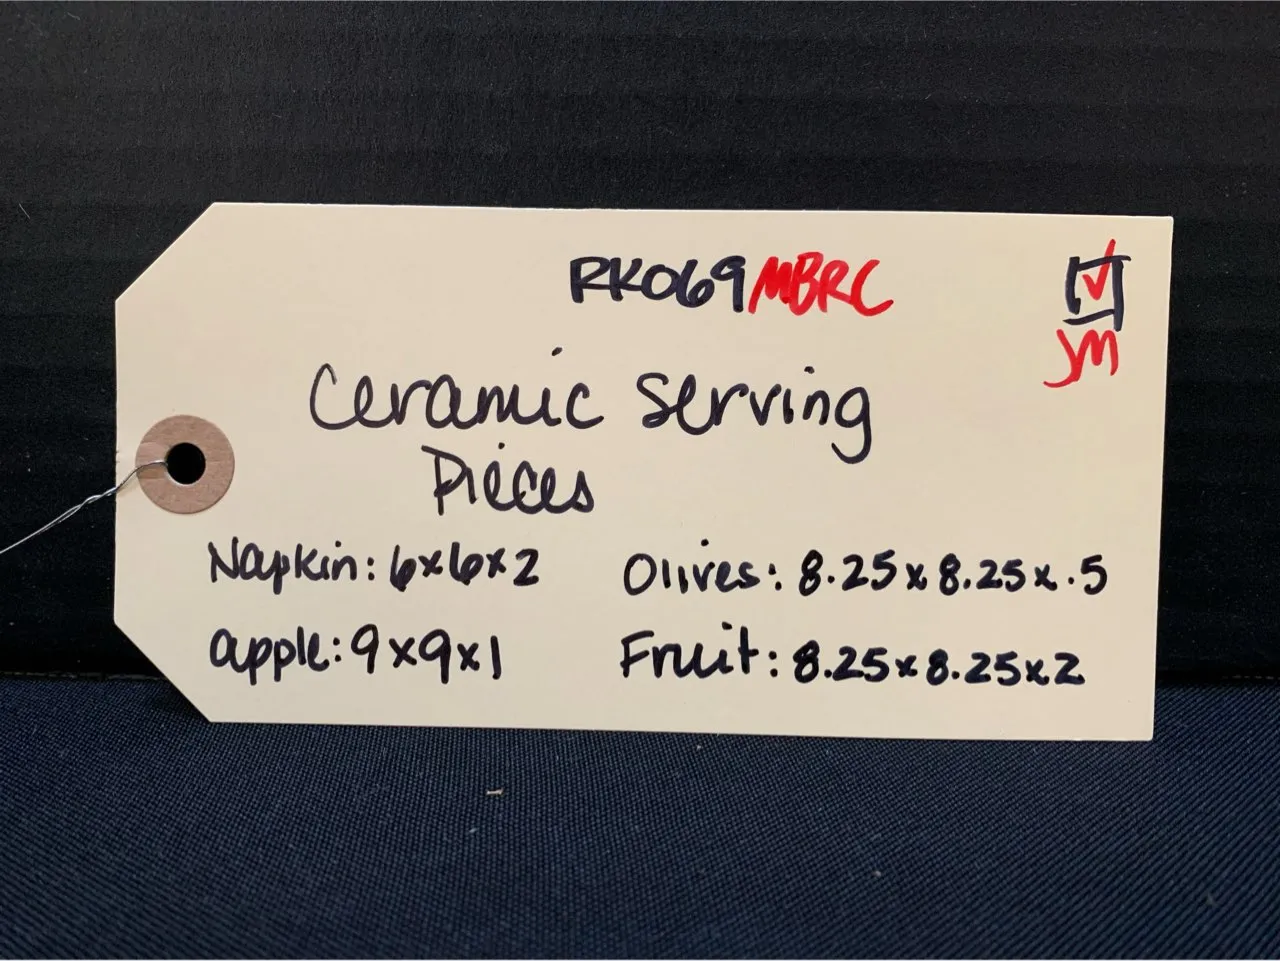 RK069MBRC
JM
Ceramic Serving
Pieces
Napkin: 6x6x2
Olives: 8.25x8.25x.5
apple: 9x9x1
Fruit: 8.25x8.25x2